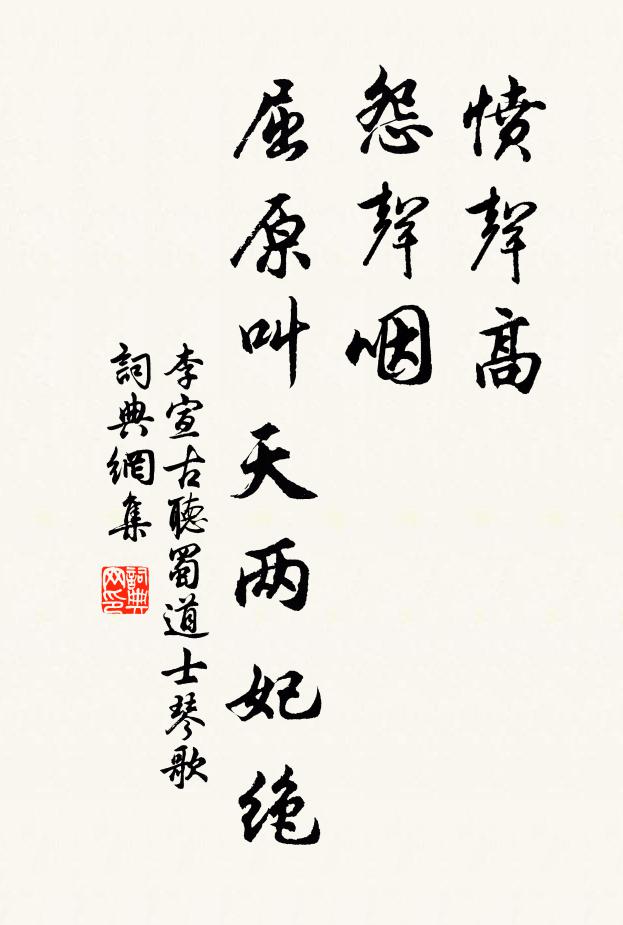 憤聲高
怨聲咽
屈原叫天两妃绝
李宣古聽蜀道士琴歌
詞典網集
詞典
网印